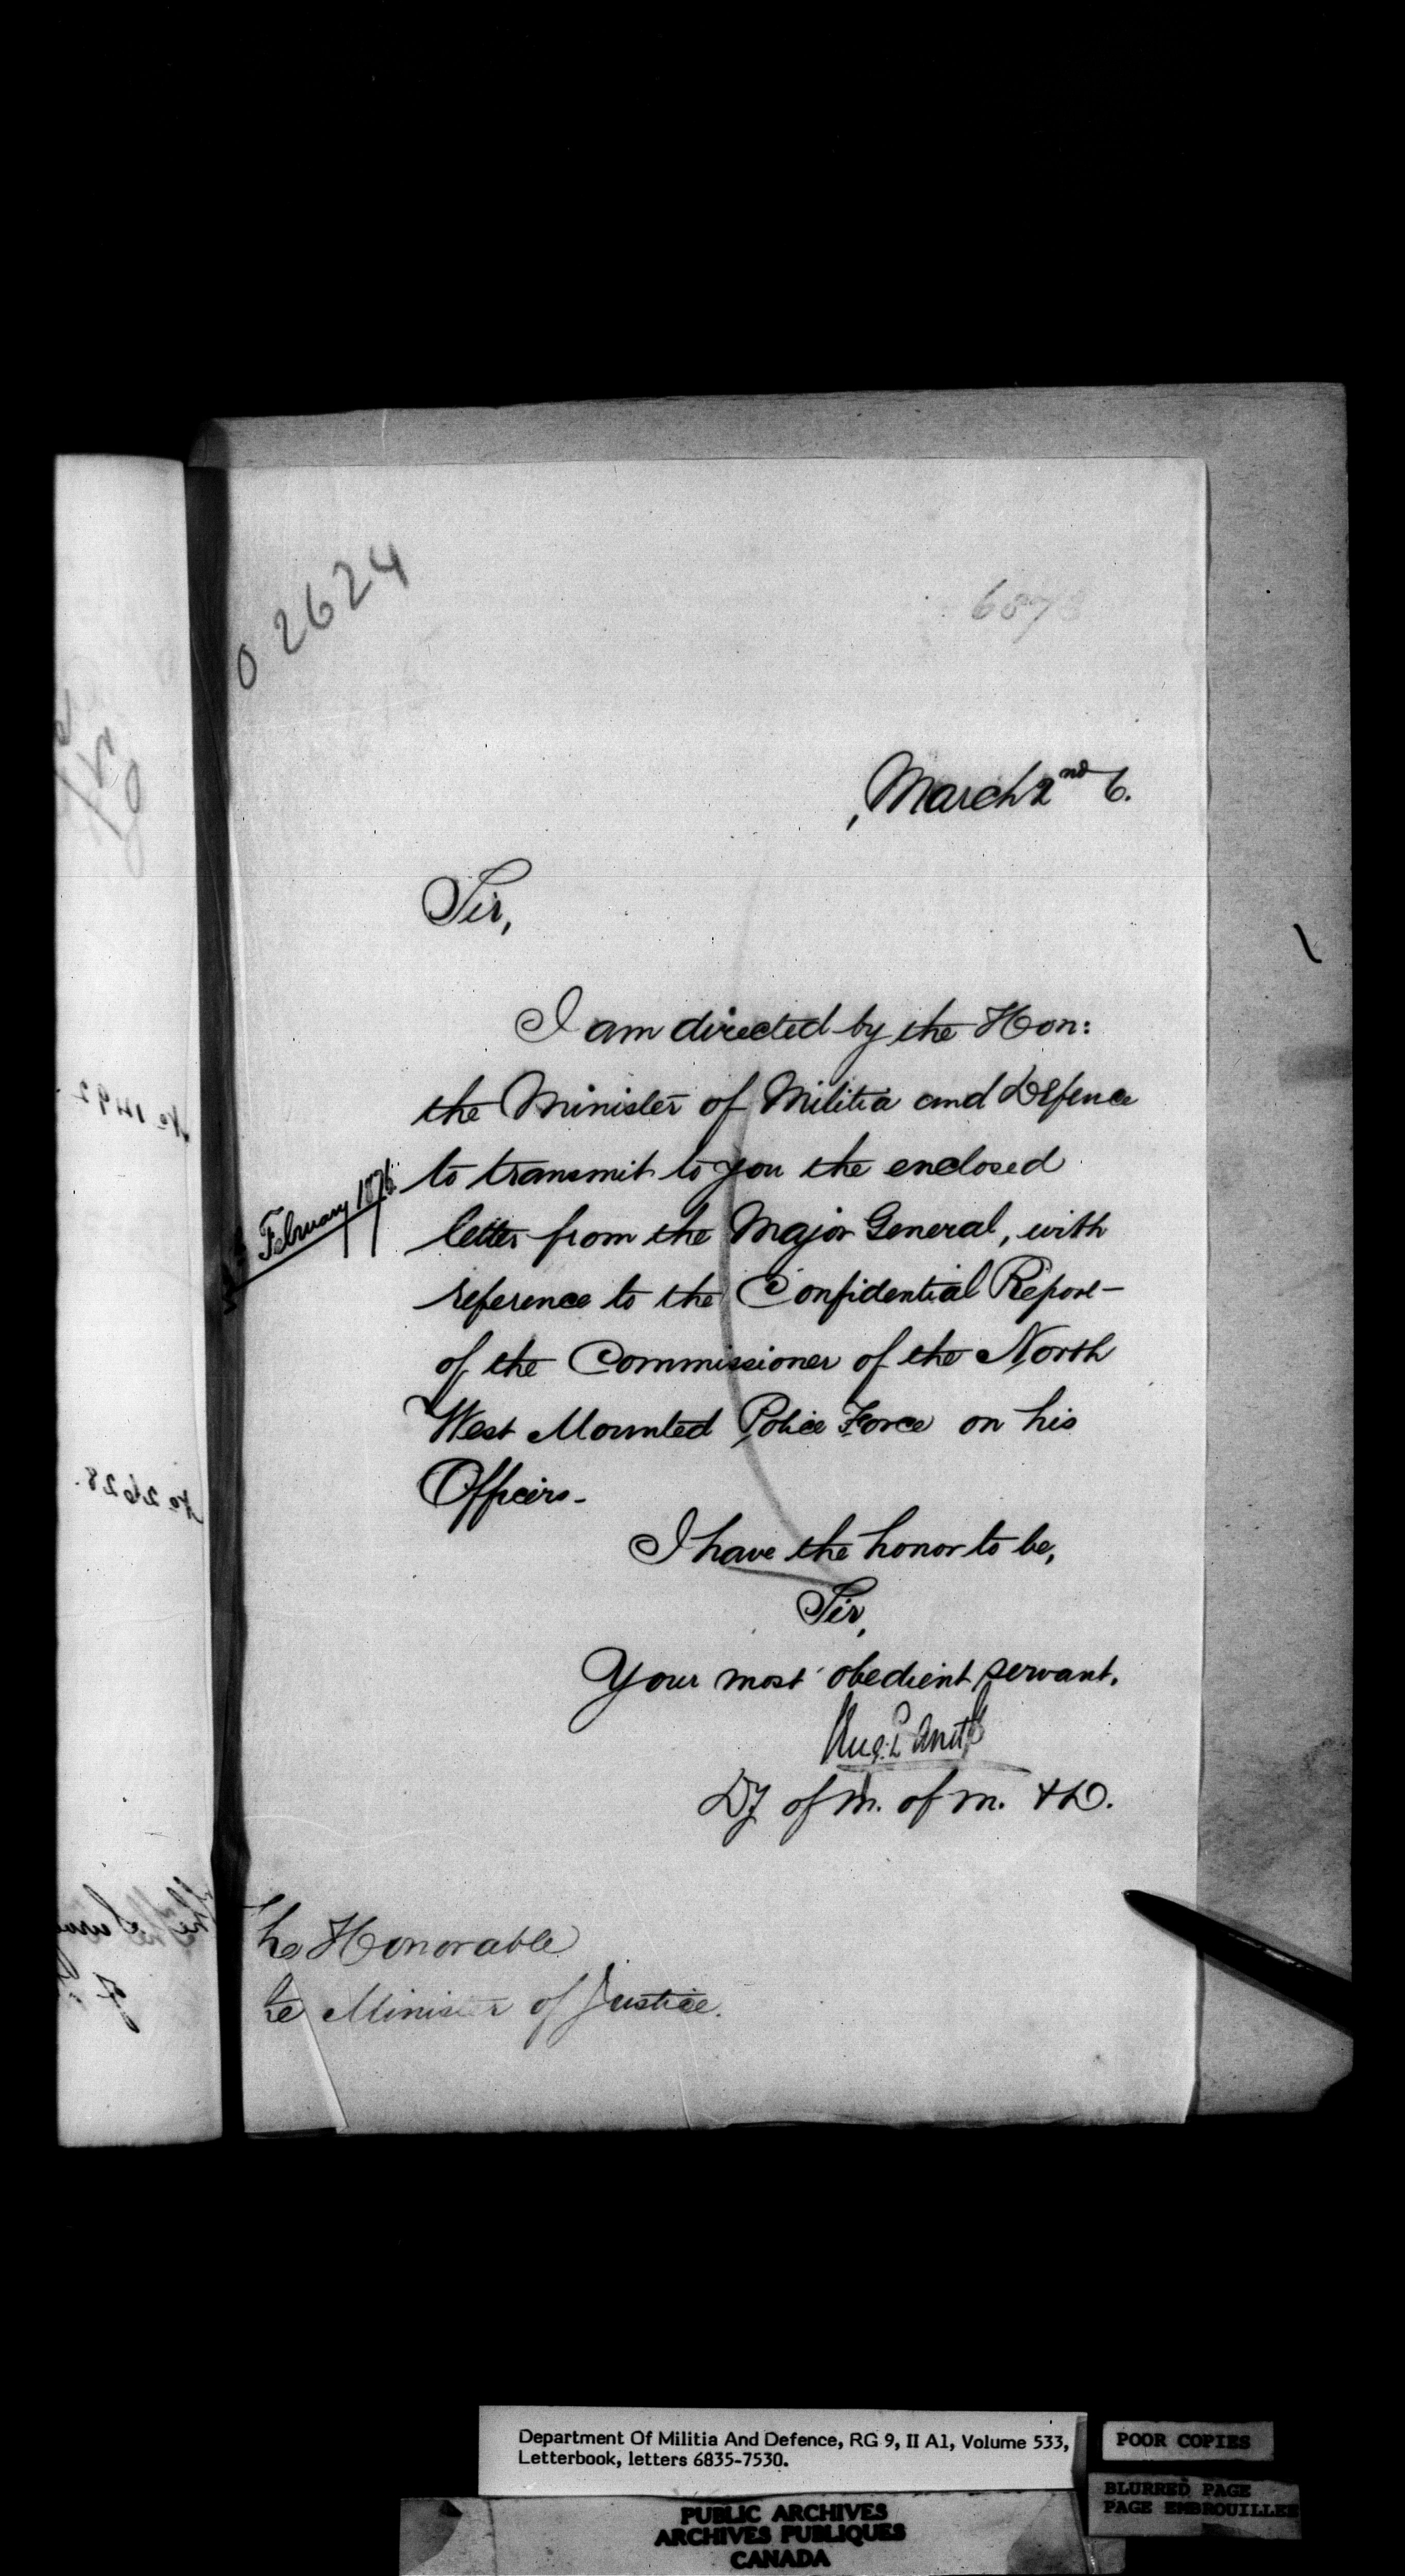 02624
March 2nd 6.
Sir,
I am directed by the Hon:
the Minister of Militia and Defence
to transmit to you the enclosed
February 1876.
letter from the Major General, with
reference to the Confidential Report
of the Commissioner of the North
West Mounted Police Force on his
Officers-
I have the honor to be,
Sir,
Your most obedient servant.
Dy of M. of M. & D.
he Honorable
he Minister of Justice.
No 1492
No 2628.
Department Of Militia And Defence, RG 9, II A1, Volume 533,
Letterbook, letters 6835-7530.
POOR COPIES
BLURRED PAGE
PAGE EMBROUILLEE
PUBLIC ARCHIVES
ARCHIVES PUBLIQUES
CANADA